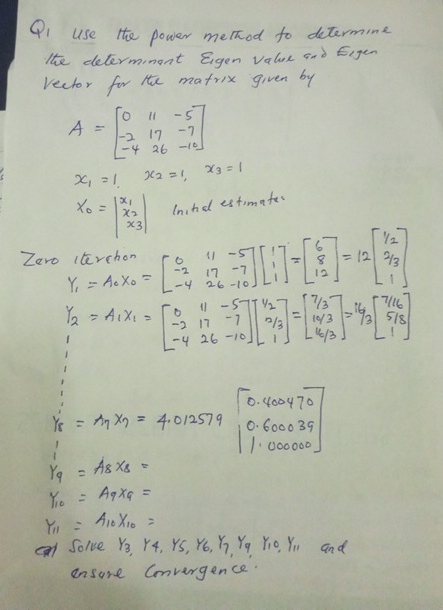 Q1 Use the power method to determine
the determinant Eigen value and Eigen
Vector for the matrix given by
A = [0 11 -5
-2 17 -7
-4 26 -10]
x1 = 1, x2 = 1, x3 = 1
X0 = |x1
x2
x3| Initial estimates
Zero iteration
Y1 = A0X0 = [0 11 -5; -2 17 -7; -4 26 -10] [1; 1; 1] = [6; 8; 12] = 12 [1/2; 2/3; 1]
Y2 = A1X1 = [0 11 -5; -2 17 -7; -4 26 -10] [1/2; 2/3; 1] = [7/3; 10/3; 16/3] = 16/3 [7/16; 5/8; 1]
Y8 = A7X7 = 4.012579 [0.400470; 0.600039; 1.000000]
Y9 = A8X8 =
Y10 = A9X9 =
Y11 = A10X10 =
Solve Y3, Y4, Y5, Y6, Y7, Y9, Y10, Y11 and
ensure Convergence.